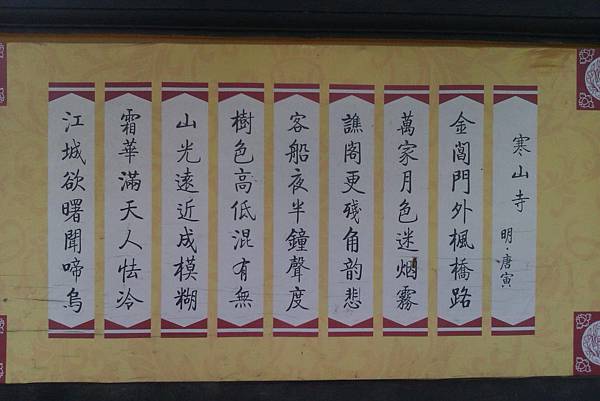 寒山寺 明·唐寅
金閶門外楓橋路
萬家月色迷烟霧
譙閣更殘角韵悲
客船夜半鐘聲度
樹色高低混有無
山光遠近成模糊
霜華滿天人怯冷
江城欲曙聞啼烏